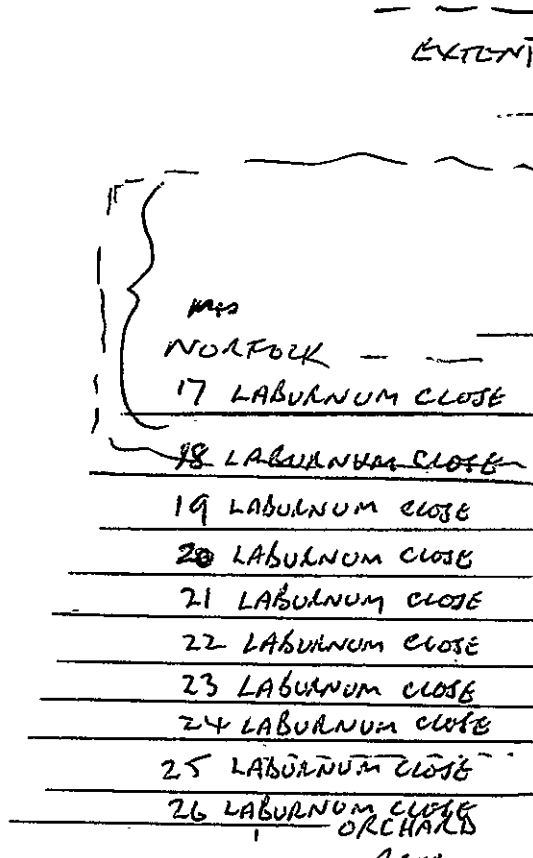 EXTENT
NORFOLK
17 LABURNUM CLOSE
18 LABURNUM CLOSE
19 LABURNUM CLOSE
20 LABURNUM CLOSE
21 LABURNUM CLOSE
22 LABURNUM CLOSE
23 LABURNUM CLOSE
24 LABURNUM CLOSE
25 LABURNUM CLOSE
26 LABURNUM CLOSE
ORCHARD